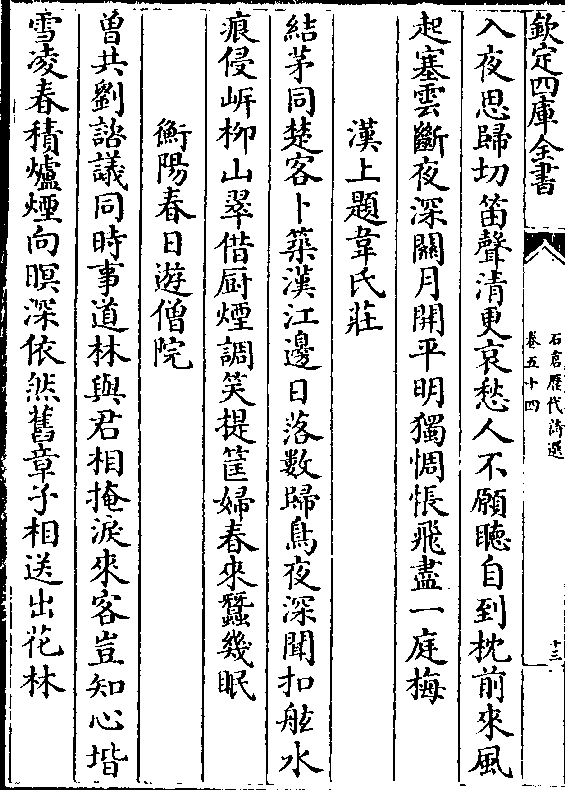 欽定四庫全書
石倉歷代詩選
卷五十四
十三
入夜思歸切笛聲清更哀愁人不願聽自到枕前來風
起塞雲斷夜深關月開平明獨惆悵飛盡一庭梅
漢上題韋氏莊
結茅同楚客卜築漢江邊日落數歸鳥夜深聞扣舷水
痕侵岍柳山翠借厨煙調笑提筐婦春來蠶幾眠
衡陽春日遊僧院
曾共劉諮議同時事道林與君相掩淚來客豈知心堦
雪凌春積爐煙向暝深依然舊童子相送出花林